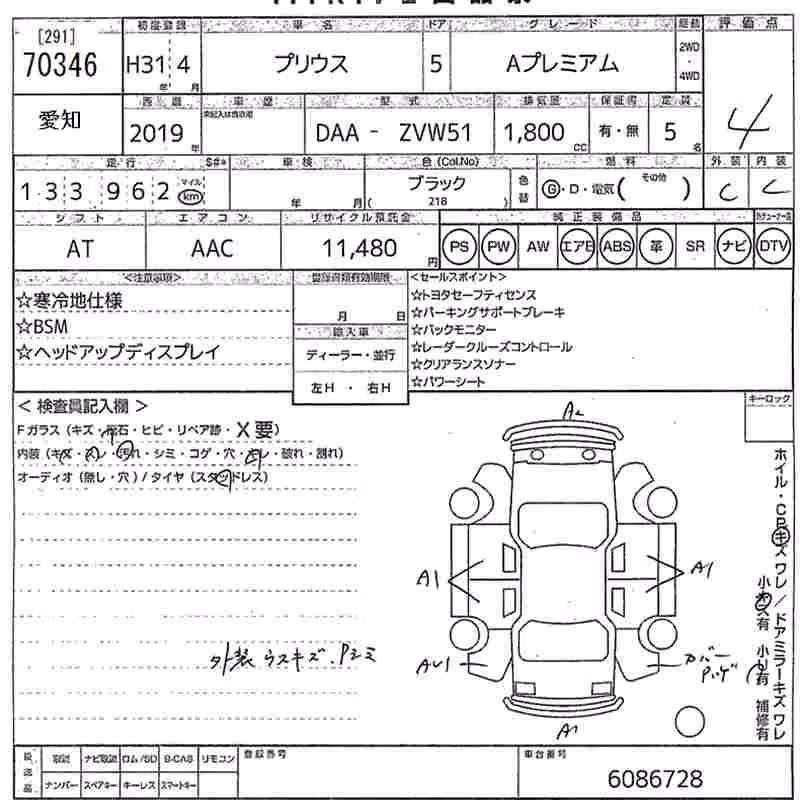 [291]
70346
初度登録 車名 ドア グレード 駆動 評価点
H31年 4月 プリウス 5 Aプレミアム 2WD・4WD 4
愛知
西暦 車歴 型式 排気量 保証書 定員
2019年 未記入は自家用 DAA - ZVW51 1,800cc 有・無 5名
走行 S#* 車検 色(Col.No) 色替 燃料 外装 内装
133,962 マイル km 年 月 ブラック ( 218 ) G・D・電気( その他 ) C C
シフト エアコン リサイクル預託金 純正装備品
AT AAC 11,480円 PS PW AW エアB ABS 革 SR ナビ DTV
<注意事項> 登録書類有効期限 <セールスポイント>
☆寒冷地仕様
☆BSM
☆ヘッドアップディスプレイ
月 日
輸入車
ディーラー・並行
左H ・ 右H
☆トヨタセーフティセンス
☆パーキングサポートブレーキ
☆バックモニター
☆レーダークルーズコントロール
☆クリアランスソナー
☆パワーシート
キーロック
< 検査員記入欄 >
Fガラス(キズ・飛石・ヒビ・リペア跡・X要)
内装(キズ・スレ・汚れ・シミ・コゲ・穴・キレ・破れ・割れ)
オーディオ(無し・穴)/タイヤ(スタッドレス)
外装 ウスキズ、Pシミ
A2
A1
A1
AU1
カバー
Pハゲ
A1
ホイル・CPキズ ワレ/ドアミラーキズ ワレ
小キズ有 小U有 補修有
後送品
取説 ナビ取説 ロム/SD B-CAS リモコン
ナンバー スペアキー キーレス スマートキー
登録番号
車台番号
6086728